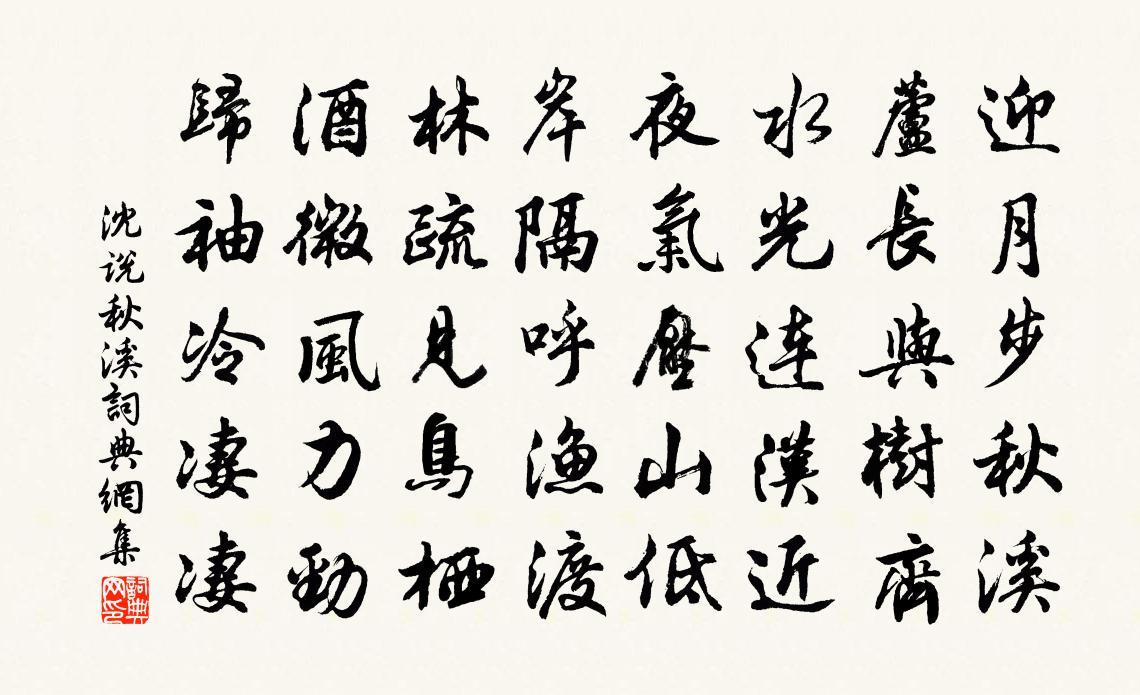 迎月步秋溪
蘆長與樹齊
水光連漢近
夜氣壓山低
岸隔呼漁渡
林疏見鳥栖
酒微風力勁
歸袖冷凄凄
沈說秋溪詞典網集
詞典網印